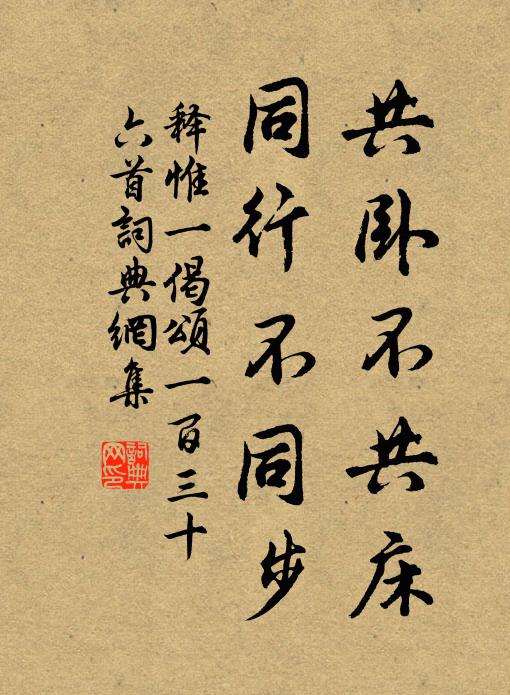 共卧不共床
同行不同步
释惟一偈頌一百三十
六首詞典網集
詞典
网印